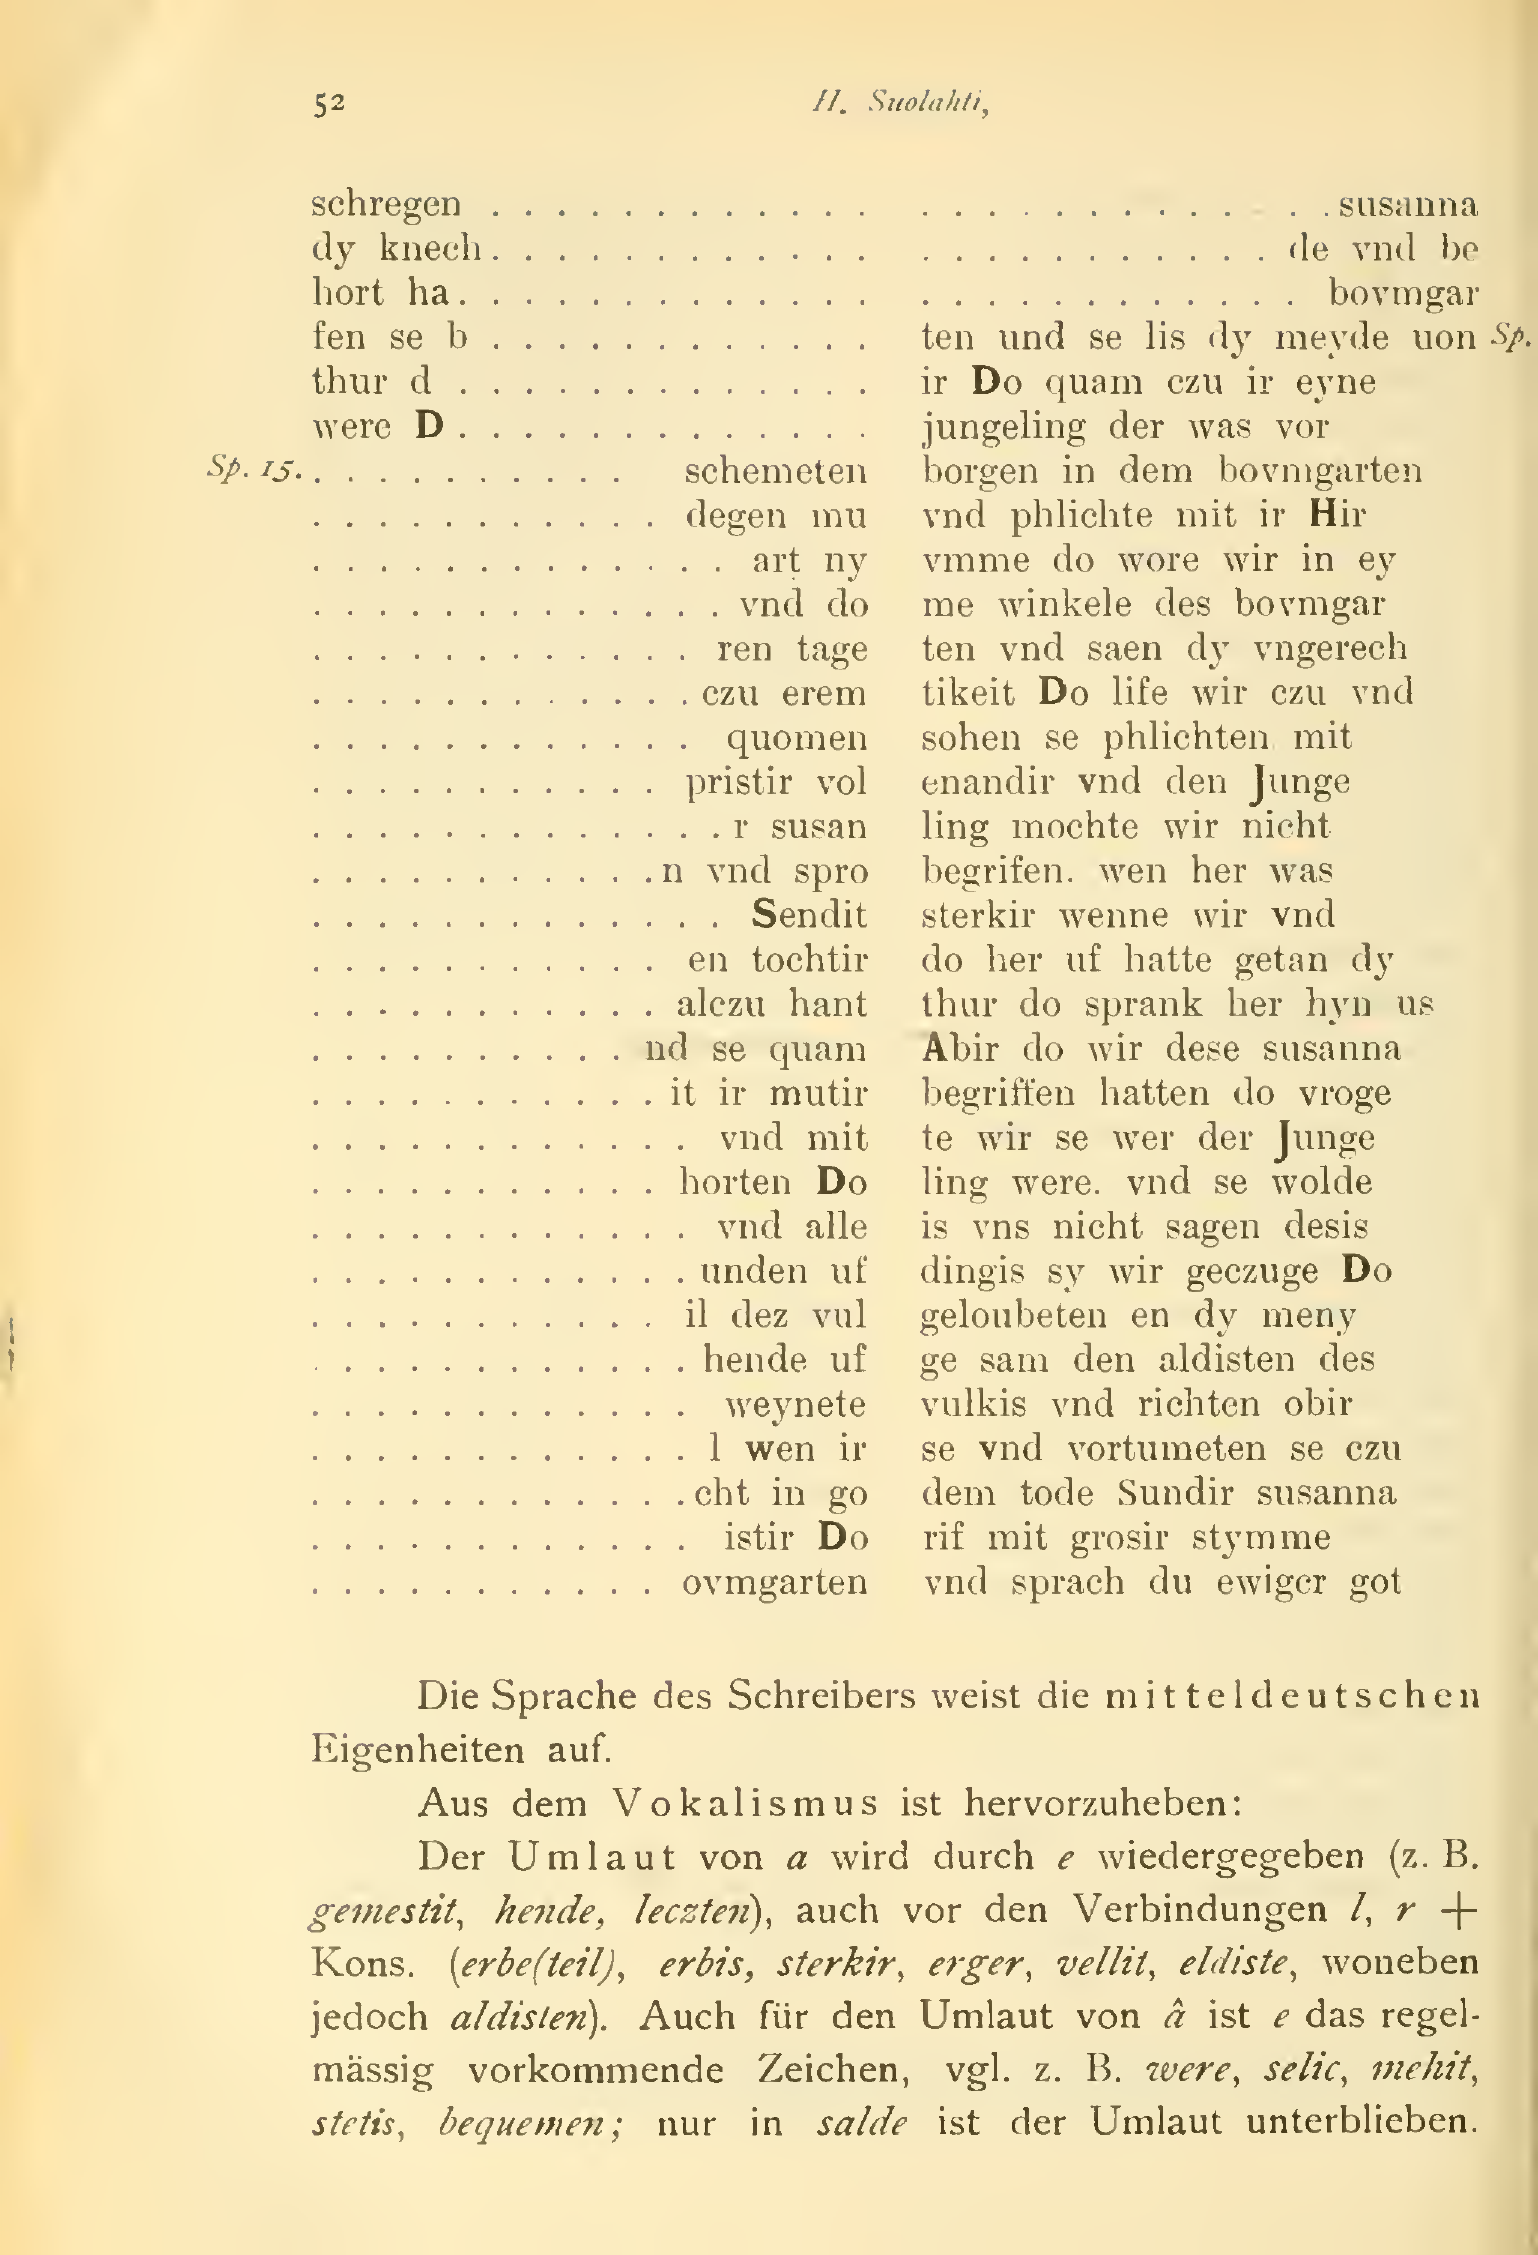 52
H. Suolahti,
schregen . . . . . . . . . . . .
dy knech . . . . . . . . . . . .
hort ha . . . . . . . . . . . . .
fen se b . . . . . . . . . . . .
thur d . . . . . . . . . . . . .
were D . . . . . . . . . . . . .
Sp. 15. . . . . . . . . . . schemeten
. . . . . . . . . . . degen mu
. . . . . . . . . . . . . art ny
. . . . . . . . . . . . . vnd do
. . . . . . . . . . . . ren tage
. . . . . . . . . . . . czu erem
. . . . . . . . . . . . quomen
. . . . . . . . . . . pristir vol
. . . . . . . . . . . . . r susan
. . . . . . . . . . . n vnd spro
. . . . . . . . . . . . . Sendit
. . . . . . . . . . . en tochtir
. . . . . . . . . . . alczu hant
. . . . . . . . . . nd se quam
. . . . . . . . . . . it ir mutir
. . . . . . . . . . . . vnd mit
. . . . . . . . . . . horten Do
. . . . . . . . . . . . vnd alle
. . . . . . . . . . . . unden uf
. . . . . . . . . . . il dez vul
. . . . . . . . . . . . hende uf
. . . . . . . . . . . . weynete
. . . . . . . . . . . . l wen ir
. . . . . . . . . . . . cht in go
. . . . . . . . . . . . istir Do
. . . . . . . . . . . ovmgarten
. . . . . . . . . . . . . susanna
. . . . . . . . . . . de vnd be
. . . . . . . . . . . . bovmgar
ten und se lis dy meyde uon Sp.
ir Do quam czu ir eyne
jungeling der was vor
borgen in dem bovmgarten
vnd phlichte mit ir Hir
vmme do wore wir in ey
me winkele des bovmgar
ten vnd saen dy vngerech
tikeit Do life wir czu vnd
sohen se phlichten mit
enandir vnd den Junge
ling mochte wir nicht
begrifen. wen her was
sterkir wenne wir vnd
do her uf hatte getan dy
thur do sprank her hyn us
Abir do wir dese susanna
begriffen hatten do vroge
te wir se wer der Junge
ling were. vnd se wolde
is vns nicht sagen desis
dingis sy wir geczuge Do
geloubeten en dy meny
ge sam den aldisten des
vulkis vnd richten obir
se vnd vortumeten se czu
dem tode Sundir susanna
rif mit grosir stymme
vnd sprach du ewiger got
Die Sprache des Schreibers weist die mitteldeutschen
Eigenheiten auf.
Aus dem Vokalismus ist hervorzuheben:
Der Umlaut von a wird durch e wiedergegeben (z. B.
gemestit, hende, leczten), auch vor den Verbindungen l, r +
Kons. (erbe(teil), erbis, sterkir, erger, vellit, eldiste, woneben
jedoch aldisten). Auch für den Umlaut von â ist e das regel-
mässig vorkommende Zeichen, vgl. z. B. were, selic, mehit,
stetis, bequemen; nur in salde ist der Umlaut unterblieben.